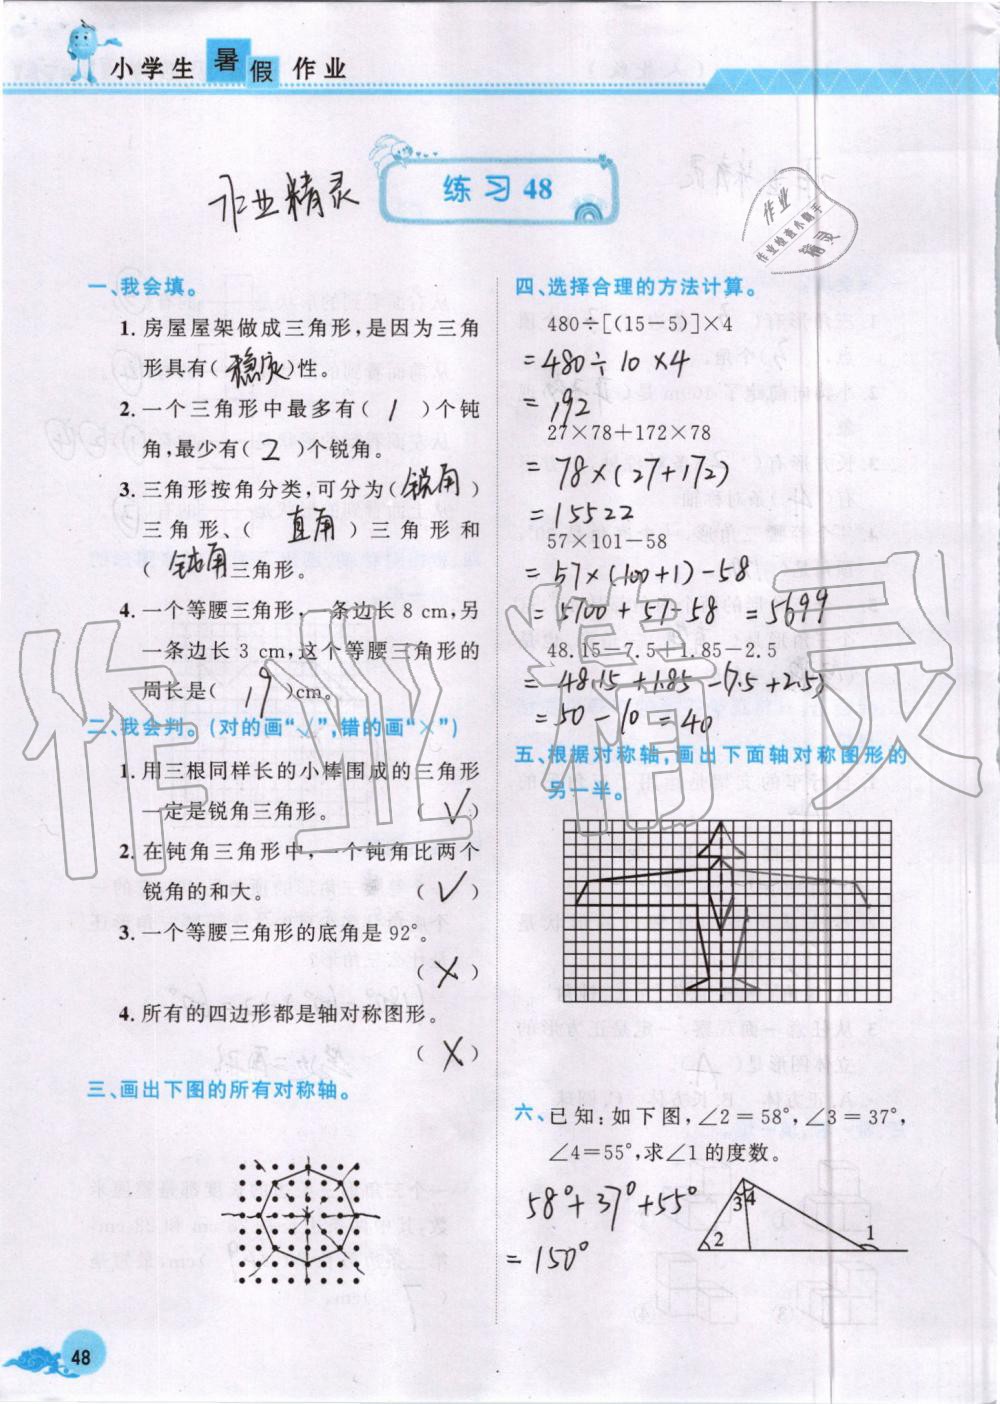 小学生 暑假 作业
练习48
作业精灵
作业
作业检查小助手
精灵
一、我会填。
1. 房屋屋架做成三角形,是因为三角
形具有(稳定)性。
2. 一个三角形中最多有( 1 )个钝
角,最少有( 2 )个锐角。
3. 三角形按角分类,可分为(锐角)
三角形、( 直角 )三角形和
( 钝角 三角形。
4. 一个等腰三角形,一条边长 8 cm,另
一条边长 3 cm,这个等腰三角形的
周长是( 19 )cm。
二、我会判。(对的画“√”,错的画“×”)
1. 用三根同样长的小棒围成的三角形
一定是锐角三角形。 ( √ )
2. 在钝角三角形中,一个钝角比两个
锐角的和大。 ( √ )
3. 一个等腰三角形的底角是92°。
( × )
4. 所有的四边形都是轴对称图形。
( × )
三、画出下图的所有对称轴。
四、选择合理的方法计算。
480÷[(15-5)]×4
=480÷10×4
=192
27×78+172×78
=78×(27+172)
=15522
57×101-58
=57×(100+1)-58
=5700+57-58 =5699
48.15-7.5+1.85-2.5
=48.15+1.85-(7.5+2.5)
=50-10=40
五、根据对称轴,画出下面轴对称图形的
另一半。
六、已知:如下图,∠2=58°,∠3=37°,
∠4=55°,求∠1的度数。
58°+37°+55°
=150°
3 4
2
1
作业精灵
48